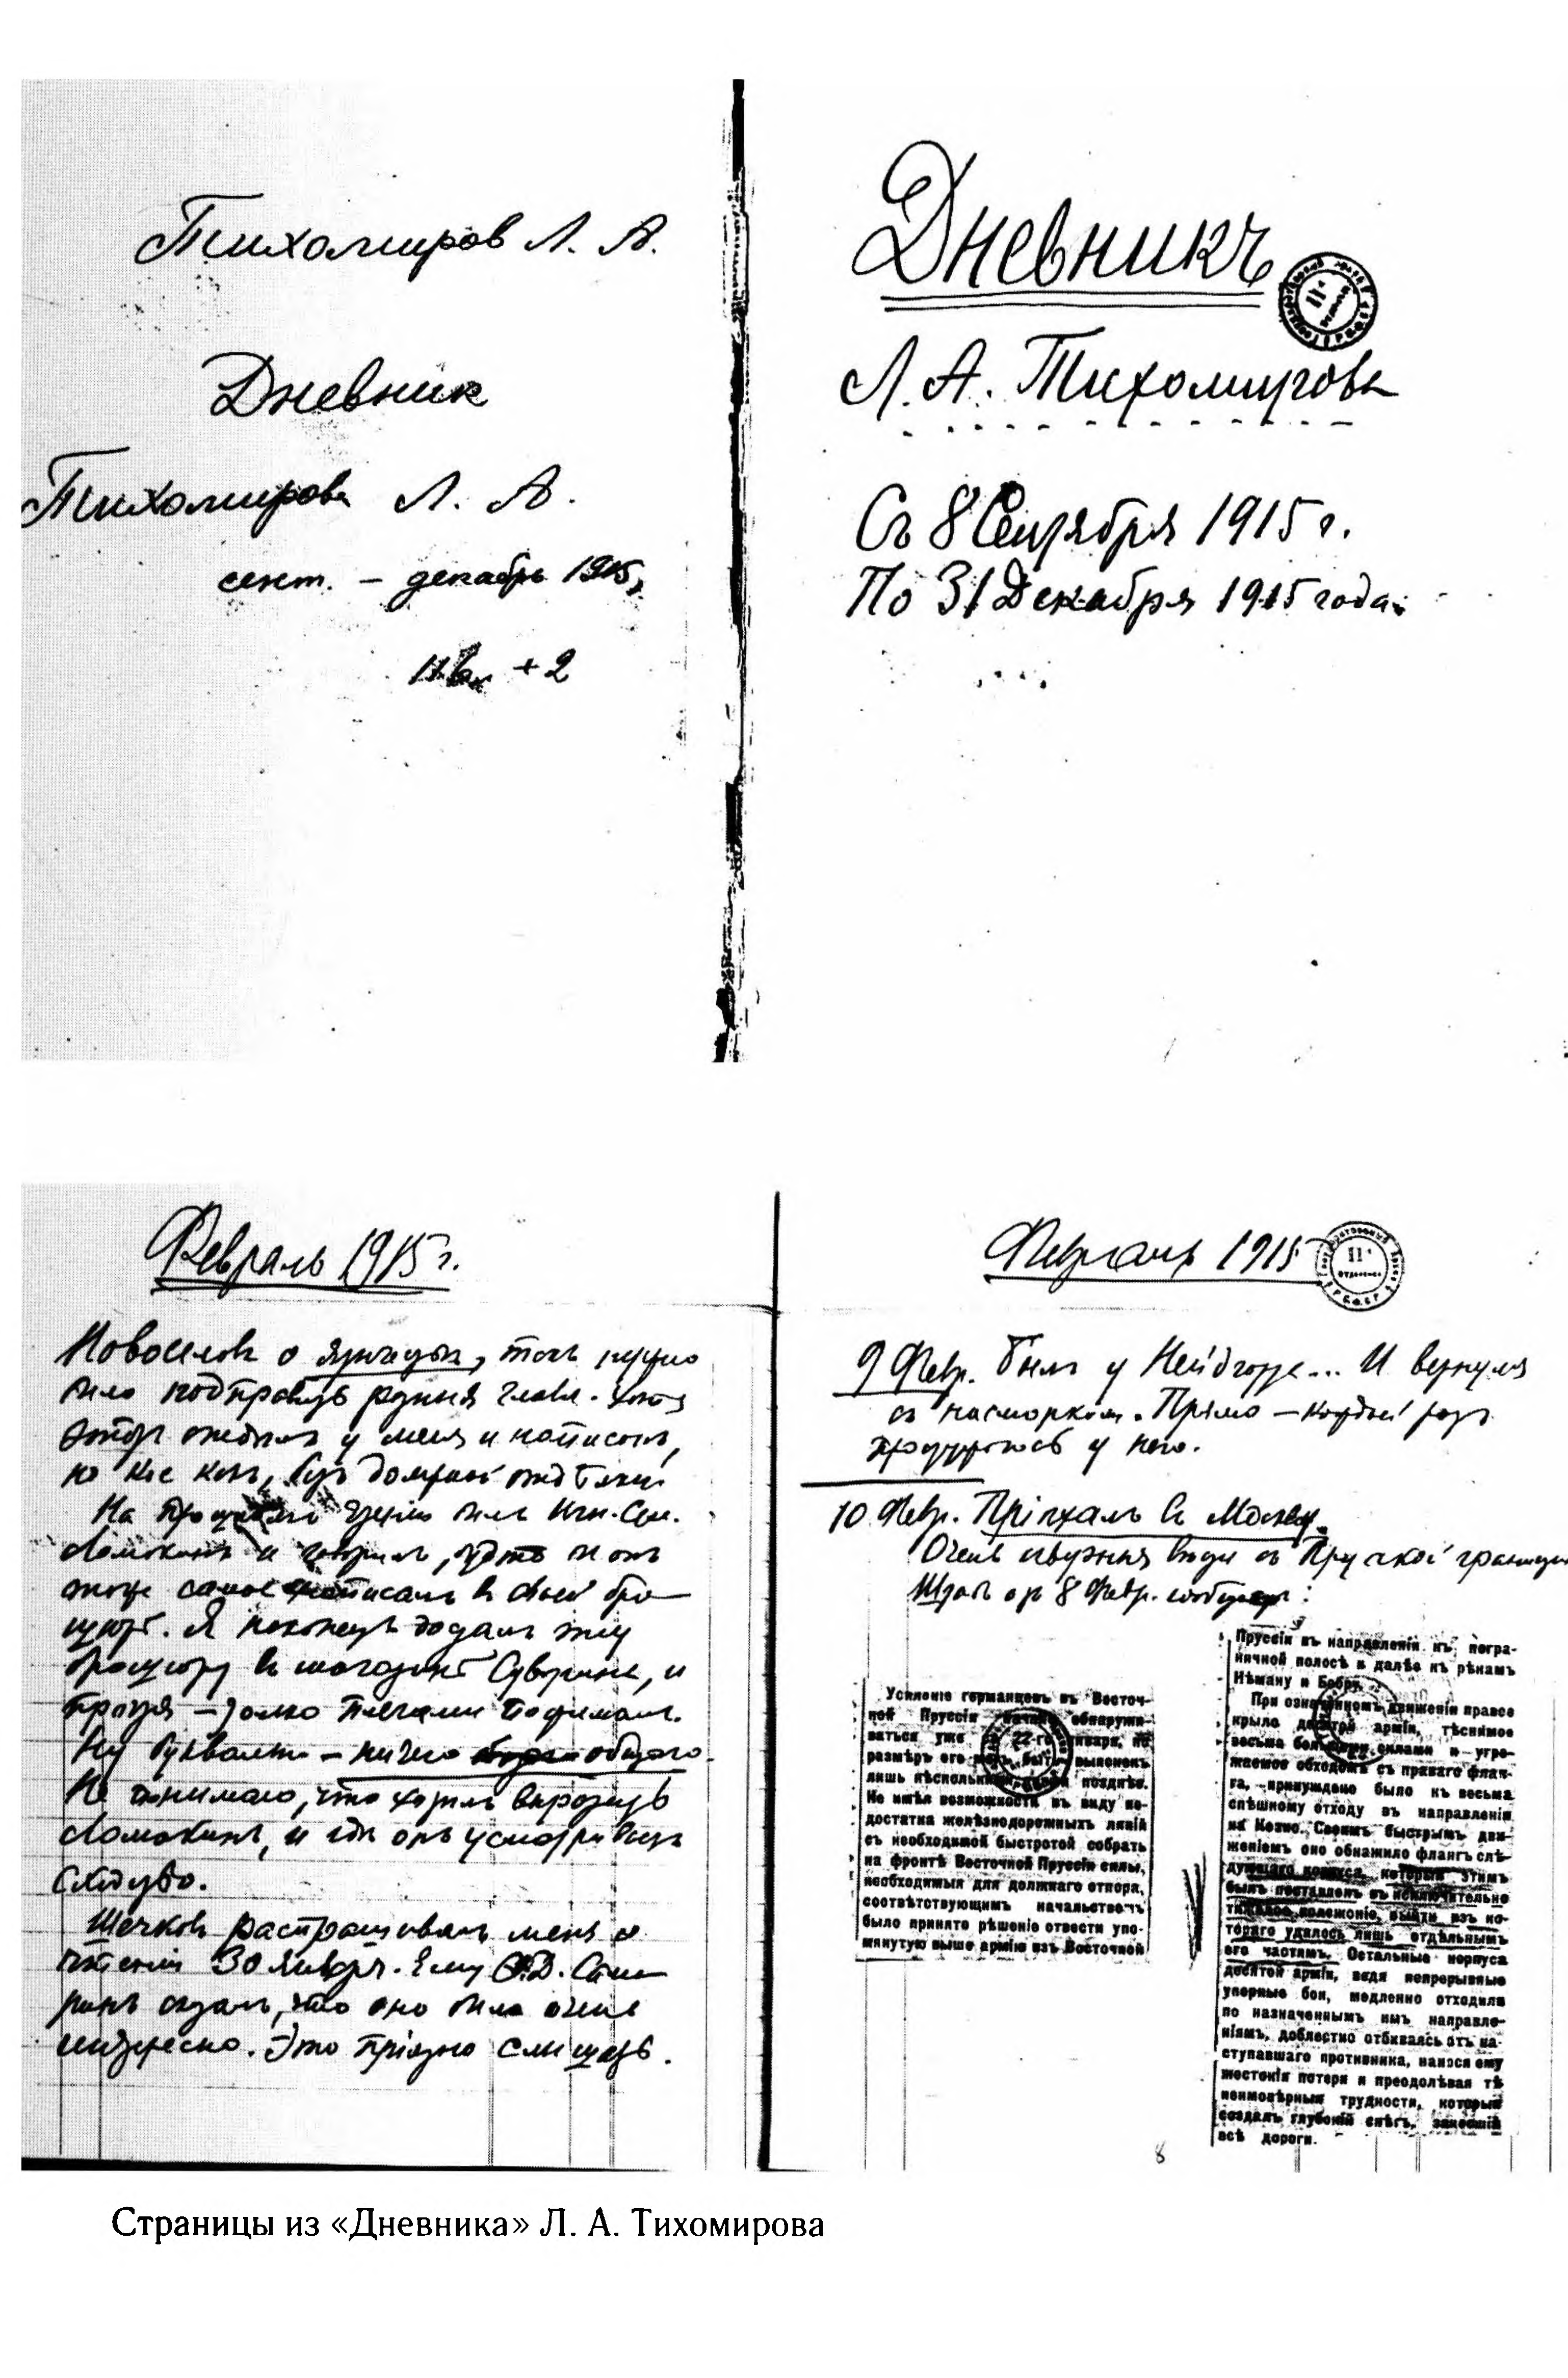 Тихомиров Л. А.
Дневник
Тихомирова Л. А.
сент. – декабрь 1915
+2
Дневникъ
Л. А. Тихомирова
Съ 8 Сентября 1915 г.
По 31 Декабря 1915 года.
Февраль 1915 г.
Новоселов о
но кое как, без
На
и говорил, будто и он
тоже самое написал в своей бро-
шюре. Я наконец эту
брошюру в магазине Суворина, и
– только плечами пожимал.
Ну буквально – ничего общего.
Не понимаю, что хотел выразить
Ломокин, и где он усматривает
сходство.
Щечков расспрашивал меня о
чтении 30 Января. Ему
сказал, что оно было очень
интересно. Это приятно слышать.
Февраль 1915
II
9 Февр. Был у Нейдгардта... И вернулся
с насморком. Прямо – каждый раз
простужаюсь у него.
10 Февр. Пріѣхал в Москву.
Очень с Прусской границы
Штаб от 8 Февр. сообщает:
Усиленіе германцевъ въ Восточ-
ной Пруссіи начало обнаружи-
ваться уже
размѣръ его
лишь позднѣе.
Не имѣя возможности въ виду не-
достатка желѣзнодорожныхъ линій
съ необходимой быстротой собрать
на фронтѣ Восточной Пруссіи силы,
необходимыя для должнаго отпора,
соотвѣтствующимъ начальствомъ
было принято рѣшеніе отвести упо-
мянутую выше армію изъ Восточной
Пруссіи въ направленіи къ погра-
ничной полосѣ и далѣе къ рѣкамъ
Нѣману и Бобру.
При означенномъ движеніи правое
крыло десятой арміи, тѣснимое
весьма большими силами и угро-
жаемое обходомъ съ праваго флан-
га, принуждено было къ весьма
спѣшному отходу въ направленіи
на Ковно. Своимъ быстрымъ дви-
женіемъ оно обнажило флангъ слѣ-
дующаго корпуса, который этимъ
былъ поставленъ въ исключительно
тяжелое положеніе, выйти изъ ко-
тораго удалось лишь отдѣльнымъ
его частямъ. Остальные корпуса
десятой арміи, ведя непрерывные
упорные бои, медленно отходили
по назначеннымъ имъ направле-
ніямъ, доблестно отбиваясь отъ на-
ступавшаго противника, нанося ему
жестокія потери и преодолѣвая тѣ
неимовѣрныя трудности, которыя
создалъ глубокій снѣгъ, занесшій
всѣ дороги.
8
Страницы из «Дневника» Л. А. Тихомирова